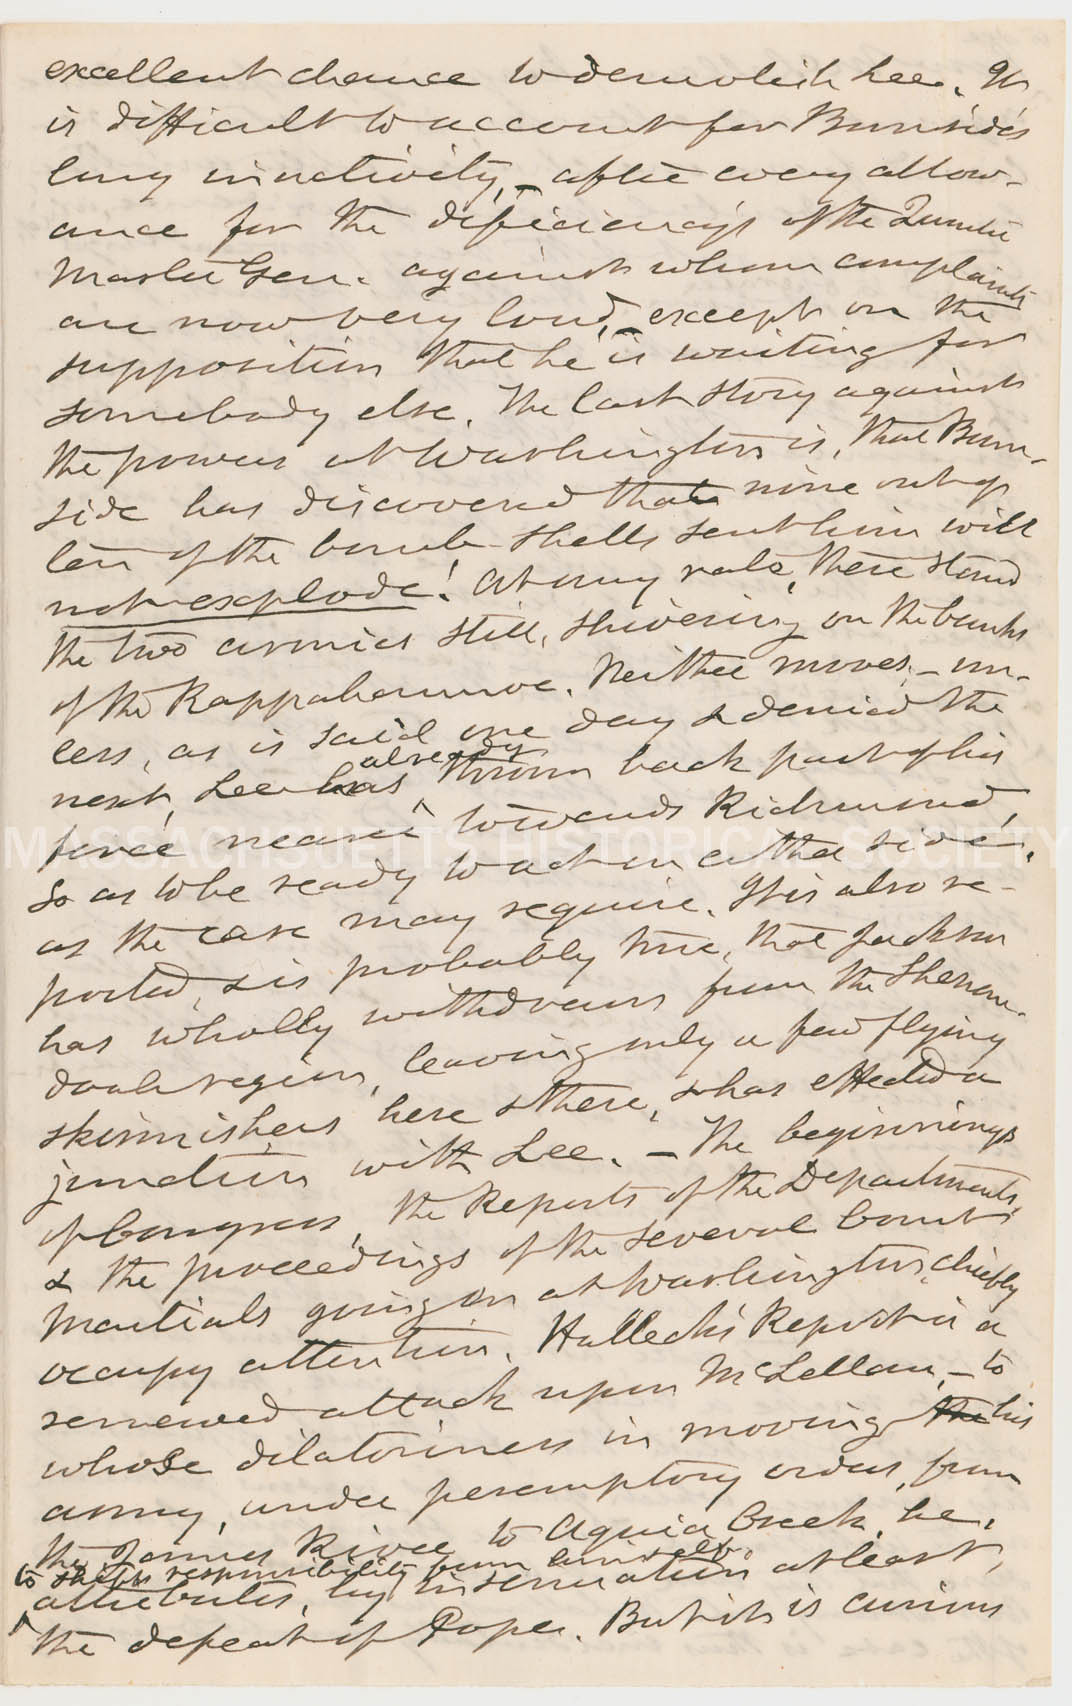 excellent chance to demolish Lee. It
is difficult to account for Burnside's
long inactivity, – after every allow-
ance for the deficiencys of the Quarter
Master Gen. against whom complaints
are now very loud, – except on the
supposition that he is waiting for
somebody else. The last story against
the powers at Washington is, that Burn-
side has discovered that nine out of
ten of the bomb-shells sent him will
not explode! At any rate, there stand
the two armies still, shivering on the banks
of the Rappahannoc. Neither moves, – un-
less, as is said one day & denied the
next, Lee has already thrown back part of his
force nearer towards Richmond,
so as to be ready to act on either side,
as the case may require. It is also re-
ported, & is probably true, that Jackson
has wholly withdrawn from the Shenan-
doah region, leaving only a few flying
skirmishers here & there, & has effected a
junction with Lee. – The beginnings
of Congress, the Reports of the Departments,
& the proceedings of the several Court
Martials going on at Washington, chiefly
occupy attention. Halleck's Report is a
renewed attack upon McLellan, – to
whose dilatoriness in moving the his
army, under peremptory orders, from
the James River to Aquia Creek, he,
to shift responsibility from himself,
attributes, by insinuation at least,
the defeat of Pope. But it is curious
MASSACHUSETTS HISTORICAL SOCIETY